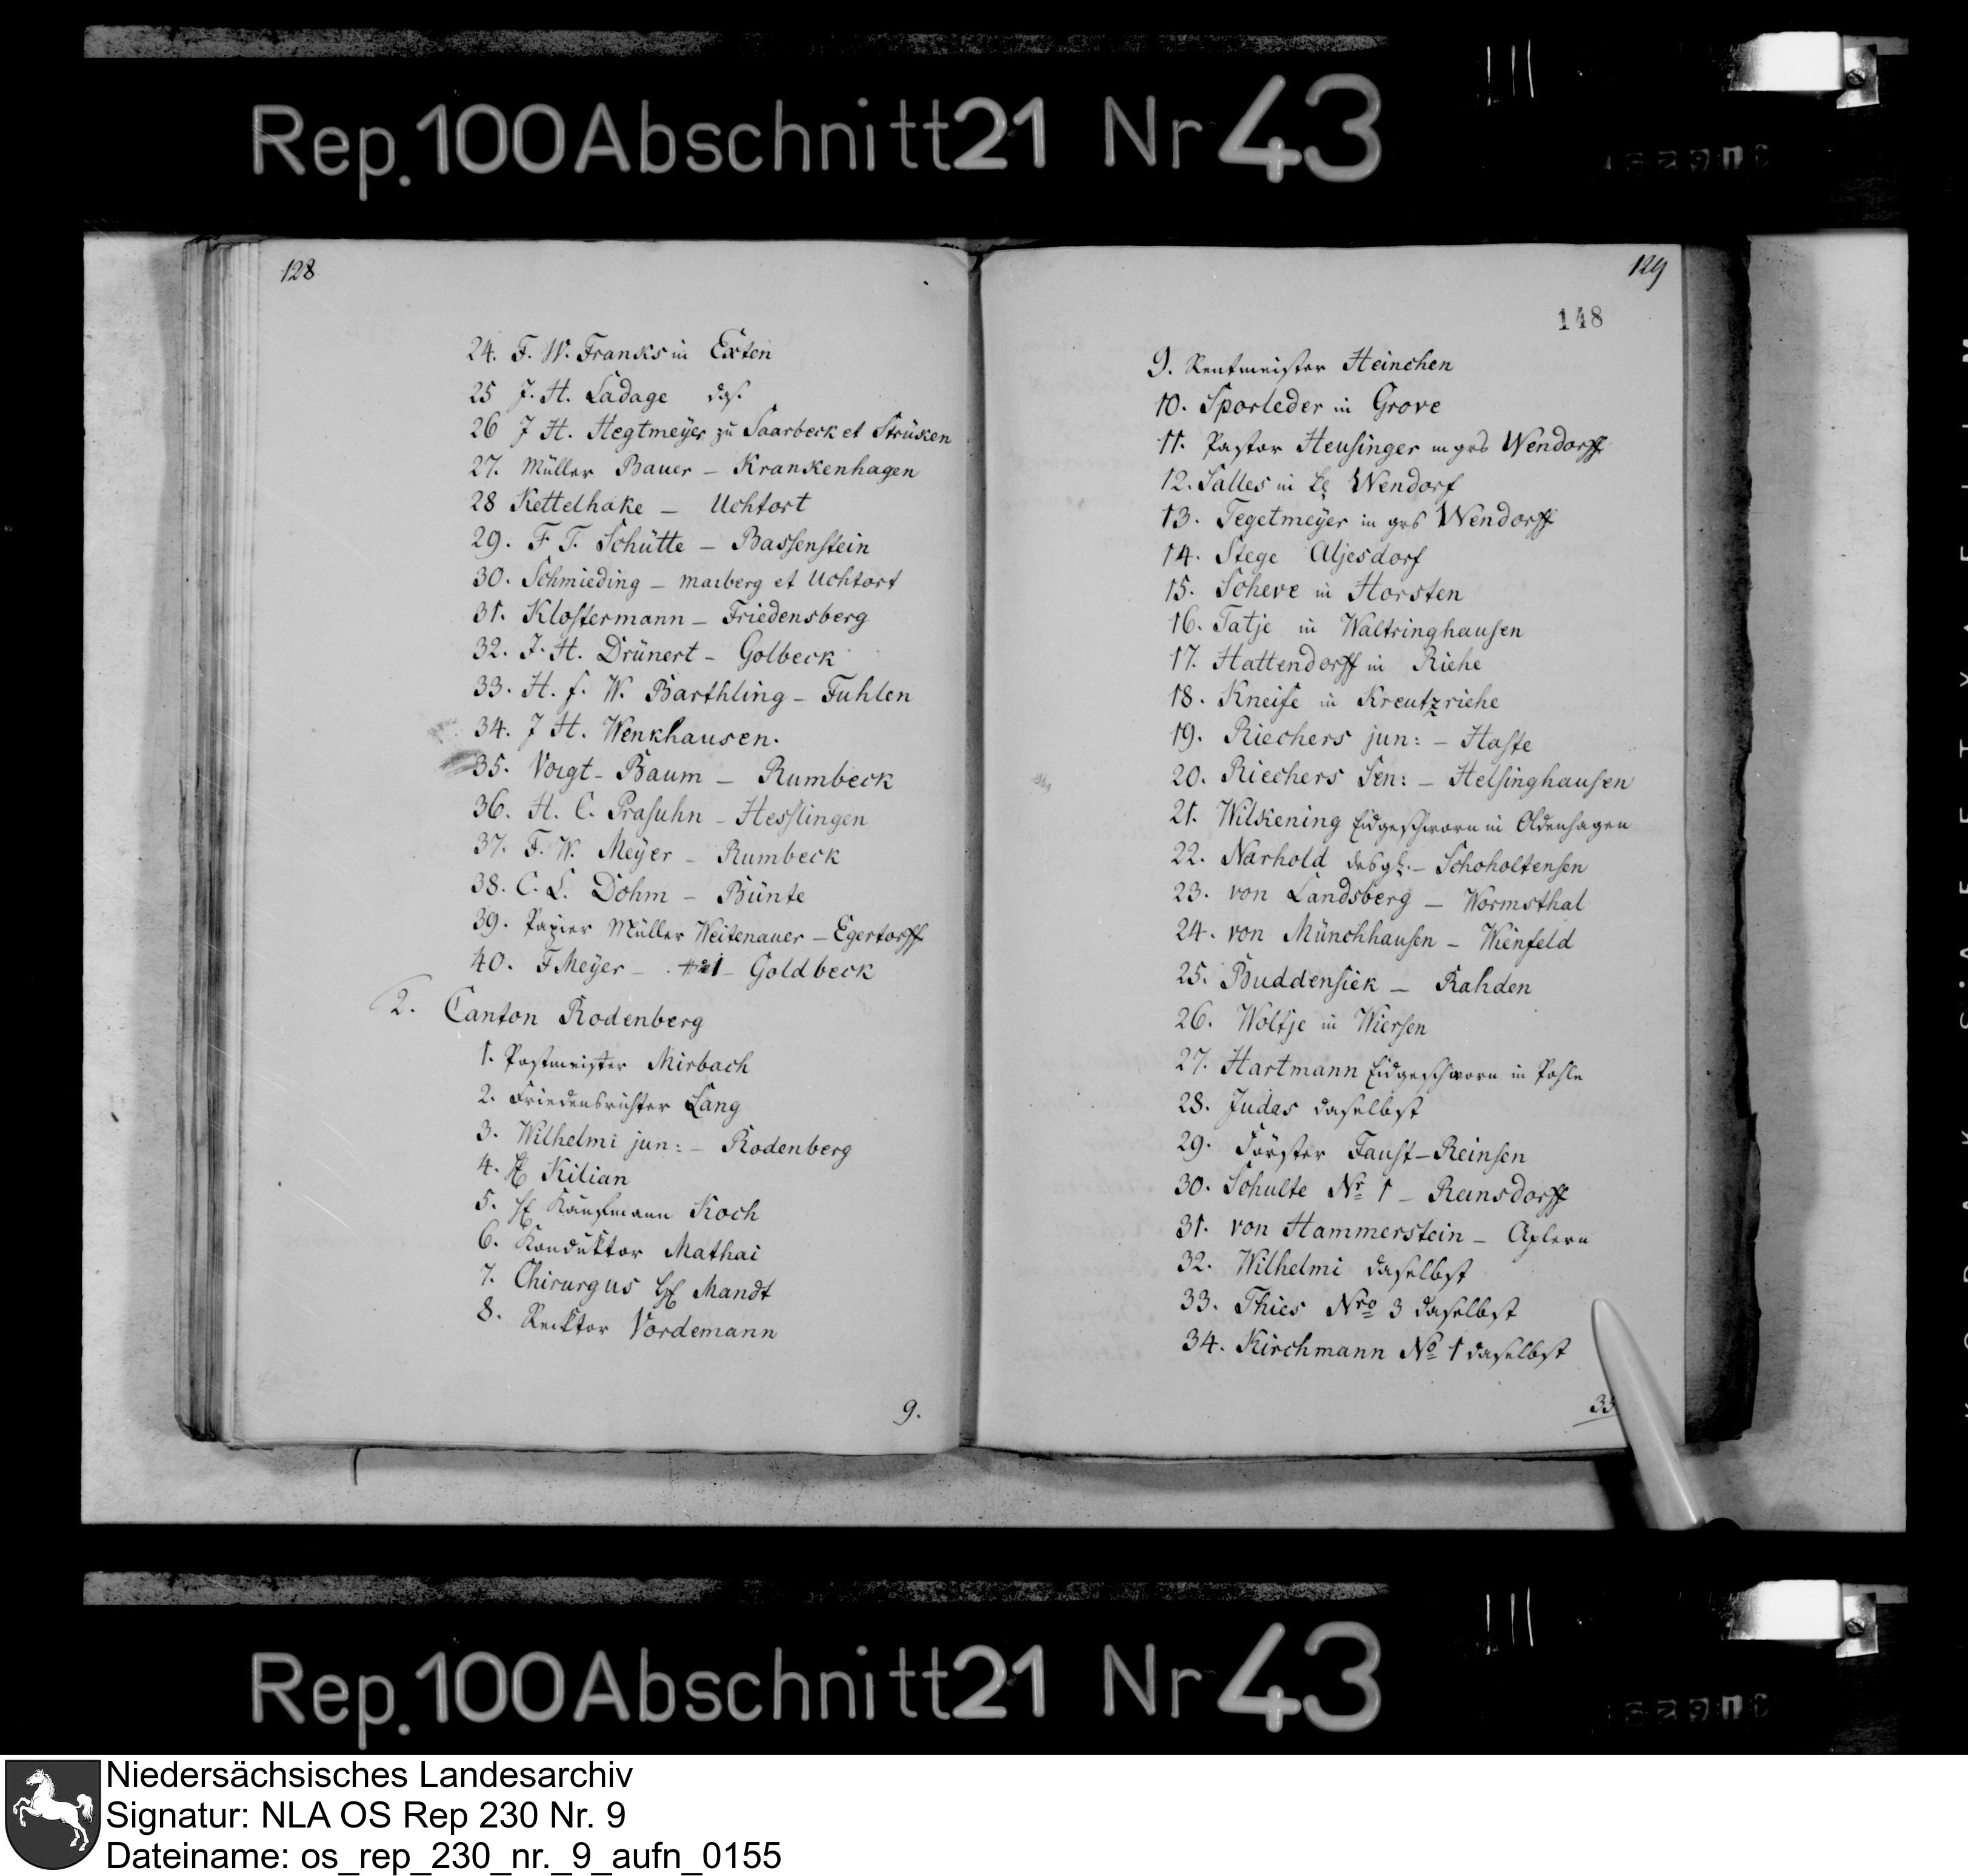 Rep.100 Abschnitt 21 Nr 43
128
24. F. W. Franks in Exten
25 J. H. Ladage das.
26 J H. Hegtmeÿer zu Saarbeck et Strüken
27. Müller Bauer – Krankenhagen
28 Kettelhake – Uchtort
29. F T. Schütte – Bassenstein
30. Schmieding – Marberg et Uchtort
31. Klostermann – Friedensberg
32. J. H. Drünert – Golbeck
33. H. f. W. Barthling – Fuhlen
34. J H. Wenkhausen.
35. Voigt-Baum – Rumbeck
36. H. C. Prasuhn – Hesslingen
37. F. W. Meÿer – Rumbeck
38. C. L. Dohm – Bünte
39. Papier Müller Weitenauer – Egertorff
40. F Meÿer – Goldbeck
2. Canton Rodenberg
1. Postmeister Mirbach
2. Friedensrichter Lang
3. Wilhelmi jun: – Rodenberg
4. H Kilian
5. H Kaufmann Koch
6. Konduktor Mathai
7. Chirurgus H Mandt
8. Recktor Vordemann
9.
129
148
9. Rentmeister Heinchen
10. Sporleder in Grove
11. Pastor Heusinger in grs Wendorff
12. Salles in Lg Wendorf
13. Tegetmeÿer in grs Wendorff
14. Stege Aljesdorf
15. Scheve in Horsten
16. Tatje in Waltringhausen
17. Hattendorff in Riehe
18. Kneise in Kreutzriehe
19. Riechers jun: – Haste
20. Riechers Sen: – Helsinghausen
21. Wilkening Eidgeschworn in Oldenhagen
22. Narhold desgl. – Schoholtensen
23. von Landsberg – Wormsthal
24. von Münchhausen – Wienfeld
25. Buddensiek – Rahden
26. Woltje in Wiersen
27. Hartmann Eidgeschworn in Pohle
28. Judas daselbst
29. Förster Faust – Reinsen
30. Schulte Nr 1 – Reinsdorff
31. von Hammerstein – Aplern
32. Wilhelmi daselbst
33. Thies Nro 3 daselbst
34. Kirchmann No 1 daselbst
Rep.100 Abschnitt 21 Nr 43
Niedersächsisches Landesarchiv
Signatur: NLA OS Rep 230 Nr. 9
Dateiname: os_rep_230_nr._9_aufn_0155